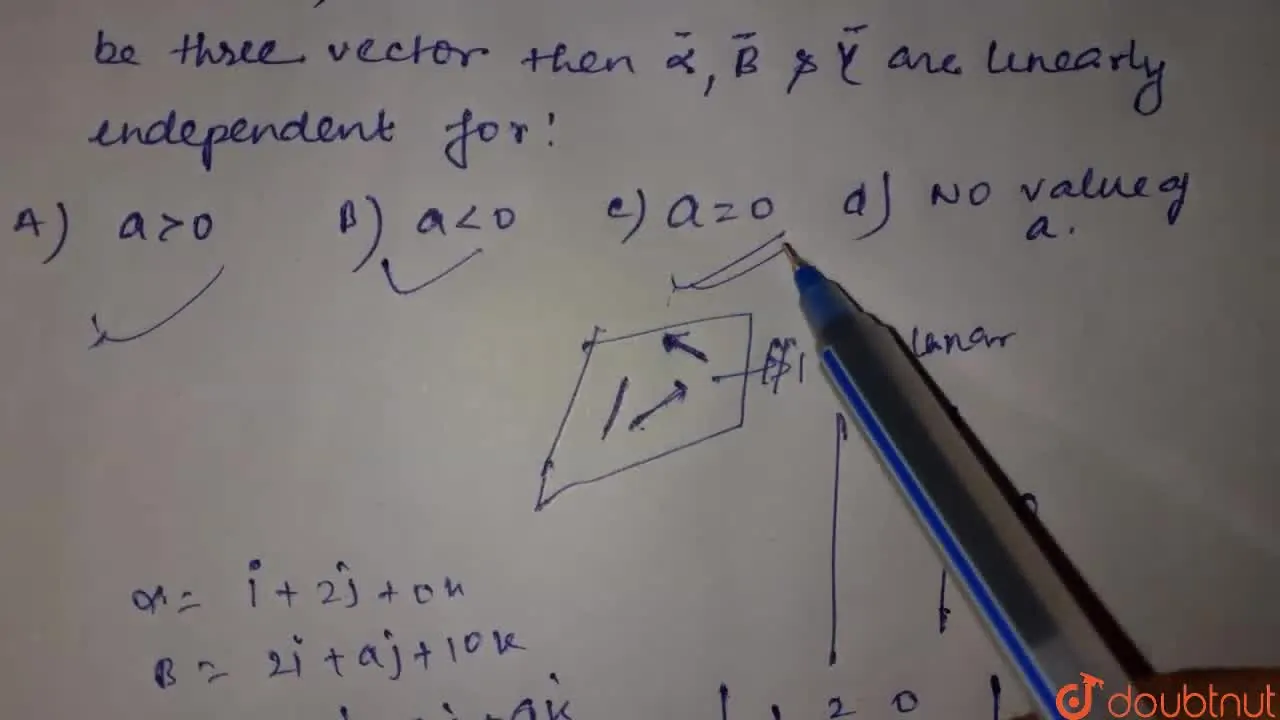 be three vector then ᾱ, B̄ & γ̄ are linearly
independent for:
A) a>0 B) a<0 c) a=0 d) NO value of
a.
lanar
α = i + 2j + 0k
B = 2i + aj + 10k
1 2 0
doubtnut